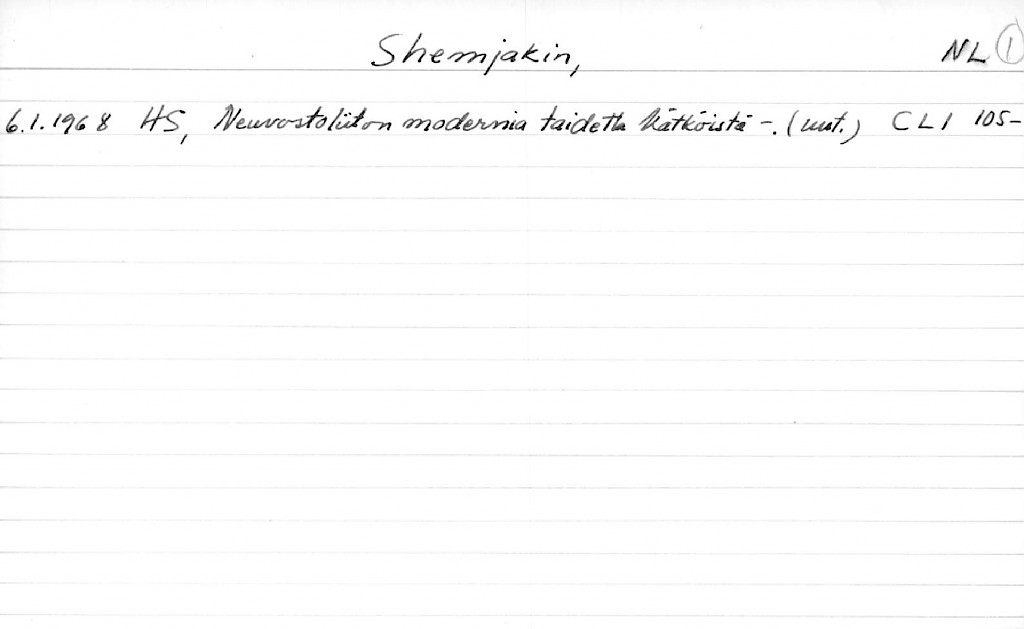 Shemjakin, NL 1
6.1.1968 HS, Neuvostoliiton modernia taidetta kätköistä -. (uut.) CLI 105-